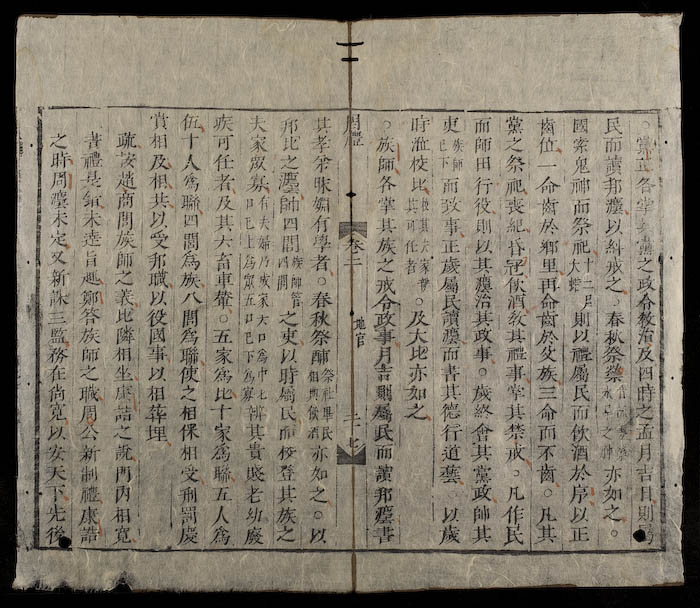 。黨正各掌其黨之政令教治及四時之孟月吉日則屬
民而讀邦灋以糾戒之。春秋祭禜亦如之。
國索鬼神而祭祀十二月大蜡則以禮屬民而飲酒於序以正
齒位一命齒於鄉里再命齒於父族三命而不齒。凡其
黨之祭祀喪紀昏冠飲酒教其禮事掌其禁戒。凡作民
而師田行役則以其灋治其政事。歲終會其黨政帥其
吏族師已下而致事正歲屬民讀灋而書其德行道藝。以歲
時涖校比校其夫家其可任者。及大比亦如之
。族師各掌其族之戒令政事月吉則屬民而讀邦灋書
周禮 卷二 地官 二十七
其孝弟睦婣有學者。春秋祭酺祭社里民相與飲酒亦如之。以
邦比之灋帥四閭族師管四閭之吏以時屬民而校登其族之
夫家眾寡有夫婦乃成家大口為中七口已上為眾五口已下為寡辨其貴賤老幼廢
疾可任者及其六畜車輦。五家為比十家為聯五人為
伍十人為聯四閭為族八閭為聯使之相保相受刑罰慶
賞相及相共以受邦職以役國事以相葬埋
疏按趙商問族師之義比隣相坐康誥之說門內相寬
書禮是錯未達旨趣鄭答族師之職周公新制禮康誥
之時周灋未定又新誅三監務在尚寬以安天下先後